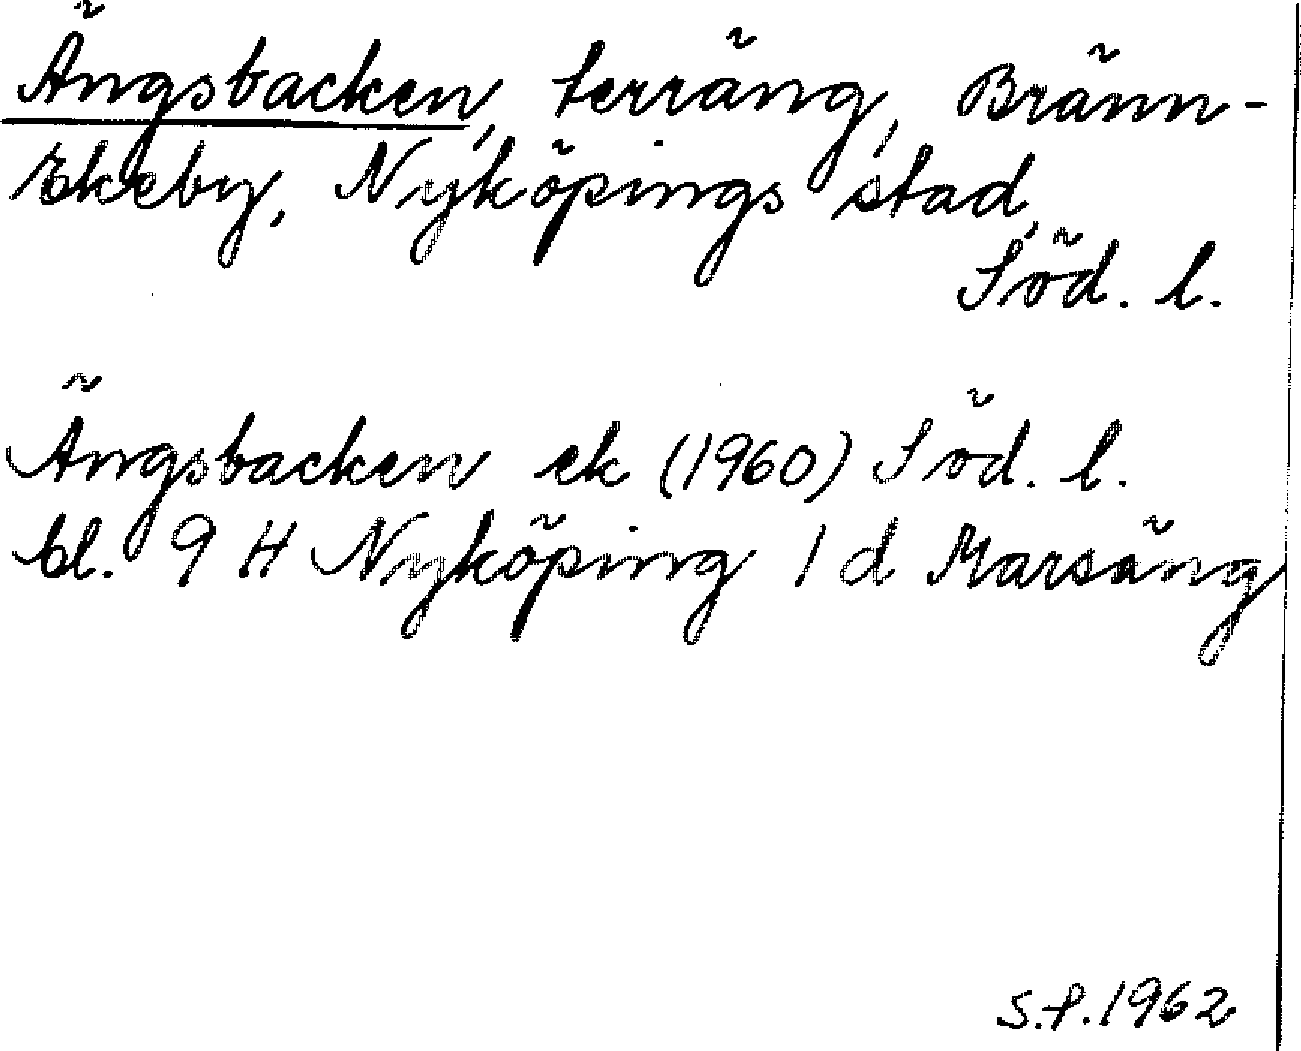 Ängsbacken, terräng, Bränn-
Ekeby, Nyköpings stad,
Söd. l.
Ängsbacken ek (1960) Söd. l.
bl. 9 H Nyköping 1 d Marsäng
S.P. 1962